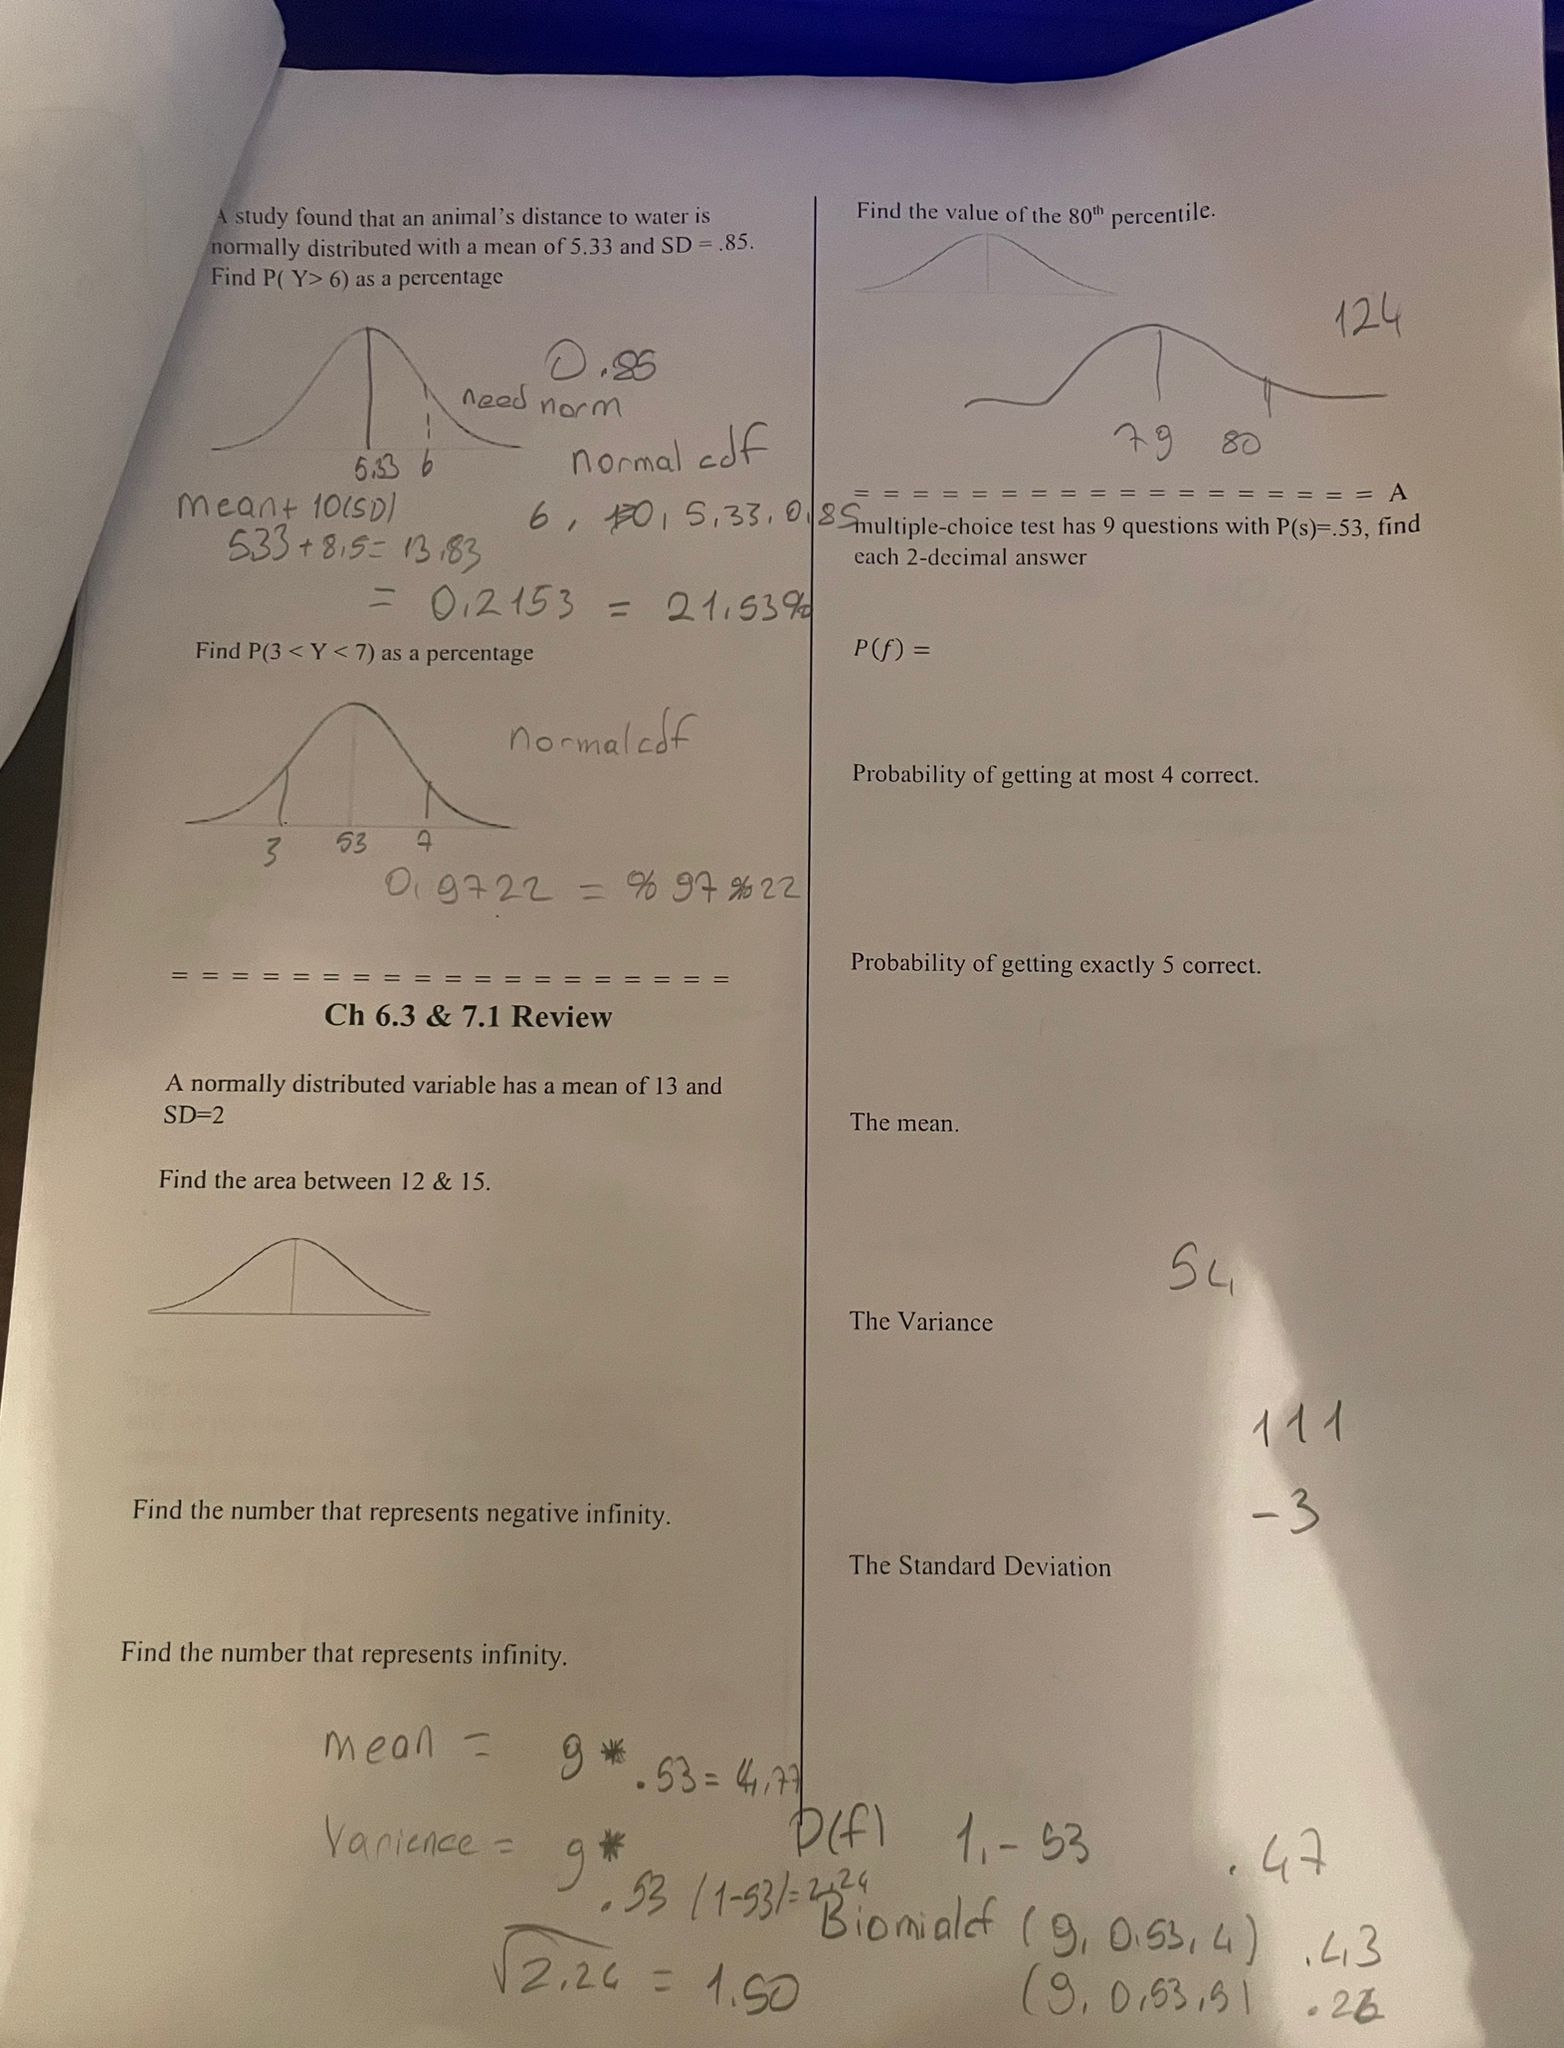 A study found that an animal's distance to water is
normally distributed with a mean of 5.33 and SD = .85.
Find P( Y> 6) as a percentage
0.85
need norm
5.33 6
normal cdf
mean+ 10(SD)
6, 10, 5,33, 0,85
533 + 8,5 = 13,83
= 0,2153 = 21,53%
Find P(3 < Y < 7) as a percentage
normalcdf
3 53 7
0,9722 = % 97 % 22
= = = = = = = = = = = = = = = = = = =
Ch 6.3 & 7.1 Review
A normally distributed variable has a mean of 13 and
SD=2
Find the area between 12 & 15.
Find the number that represents negative infinity.
Find the number that represents infinity.
mean = 9 * .53 = 4,77
Varience = 9 * .53 (1-53) = 2,24
√2,24 = 1.50
Find the value of the 80th percentile.
124
79 80
= = = = = = = = = = = = = = = = = = A
multiple-choice test has 9 questions with P(s)=.53, find
each 2-decimal answer
P(f) =
Probability of getting at most 4 correct.
Probability of getting exactly 5 correct.
The mean.
54
The Variance
111
-3
The Standard Deviation
P(f) 1,- 53 .47
Biomialcf (9, 0.53, 4) .43
(9, 0,53,5) .26